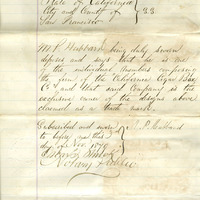 State of California
City and County of } S.S.
San Francisco
M. P. Hubbard being duly sworn
deposes and says that he is one
of the individual members composing
the firm of the California Cigar Box
Co and that said Company is the
exclusive owner of the design above
claimed as a trade mark.
Subscribed and sworn } M. P. Hubbard
to before me this
day Nov 1876
Notary Public